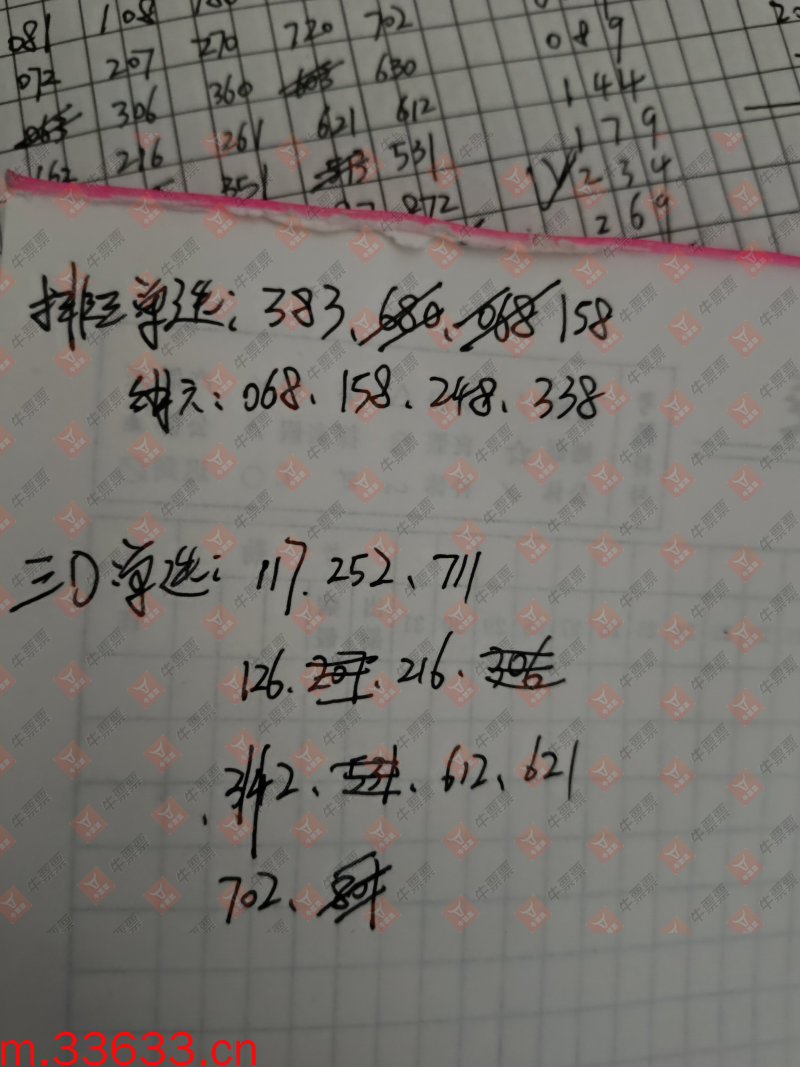 081 108
072 207 270 720 702
063 306 360 603 630
162 216 261 621 612
351 513 531
972
089
144
179
√234
269
排三单选:383、680、068 158
组六:068、158、248、338
三D单选:117.252、711
126、207、216、306
342、531、612、621
702、801
牛票票
m.33633.cn